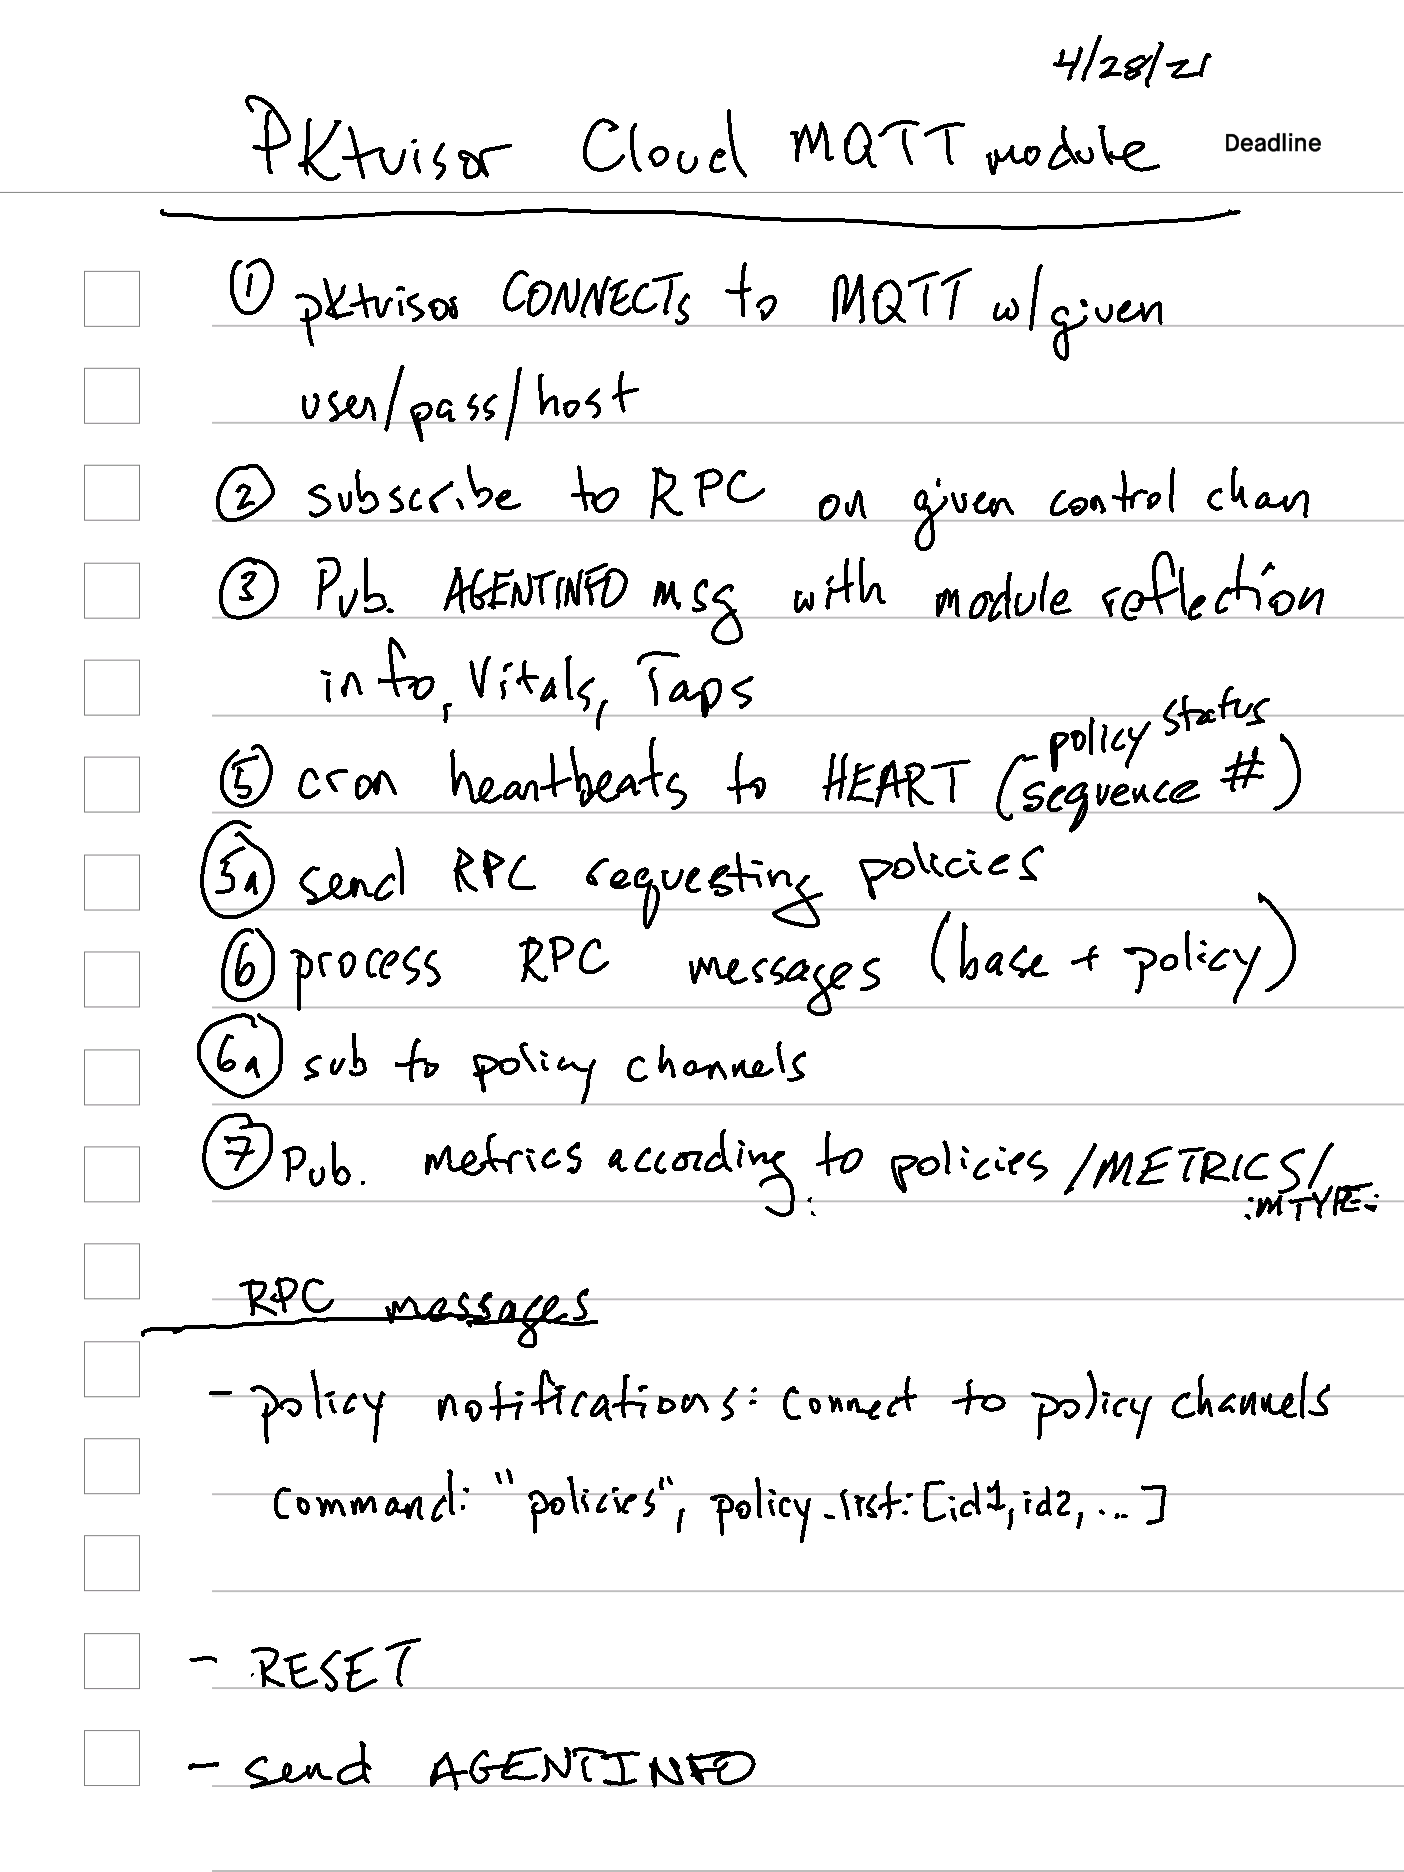 4/28/21
Pktvisor Cloud MQTT module
Deadline
① pktvisor CONNECTs to MQTT w/given
user/pass/host
② subscribe to RPC on given control chan
③ Pub. AGENTINFO msg with module reflection
info, Vitals, Taps
- policy status
⑤ cron heartbeats to HEART (sequence #)
5a send RPC requesting policies
⑥ process RPC messages (base + policy)
6a sub to policy channels
⑦ Pub. metrics according to policies /METRICS/
:MTYPE:
RPC messages
- policy notifications: connect to policy channels
command: "policies", policy_list: [id1, id2, ... ]
- RESET
- send AGENTINFO